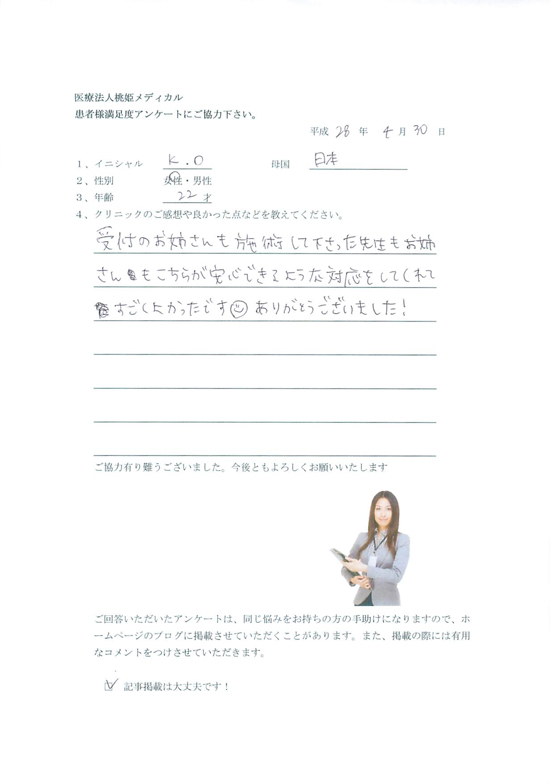 医療法人桃姫メディカル
患者様満足度アンケートにご協力下さい。
平成 28 年 4 月 30 日
1、イニシャル K.O 母国 日本
2、性別 女性・男性
3、年齢 22 才
4、クリニックのご感想や良かった点などを教えてください。
受付のお姉さんも施術して下さった先生もお姉
さんもこちらが安心できるような対応をしてくれて
すごくよかったです ありがとうございました!
ご協力有り難うございました。今後ともよろしくお願いいたします
ご回答いただいたアンケートは、同じ悩みをお持ちの方の手助けになりますので、ホ
ームページのブログに掲載させていただくことがあります。また、掲載の際には有用
なコメントをつけさせていただきます。
記事掲載は大丈夫です!